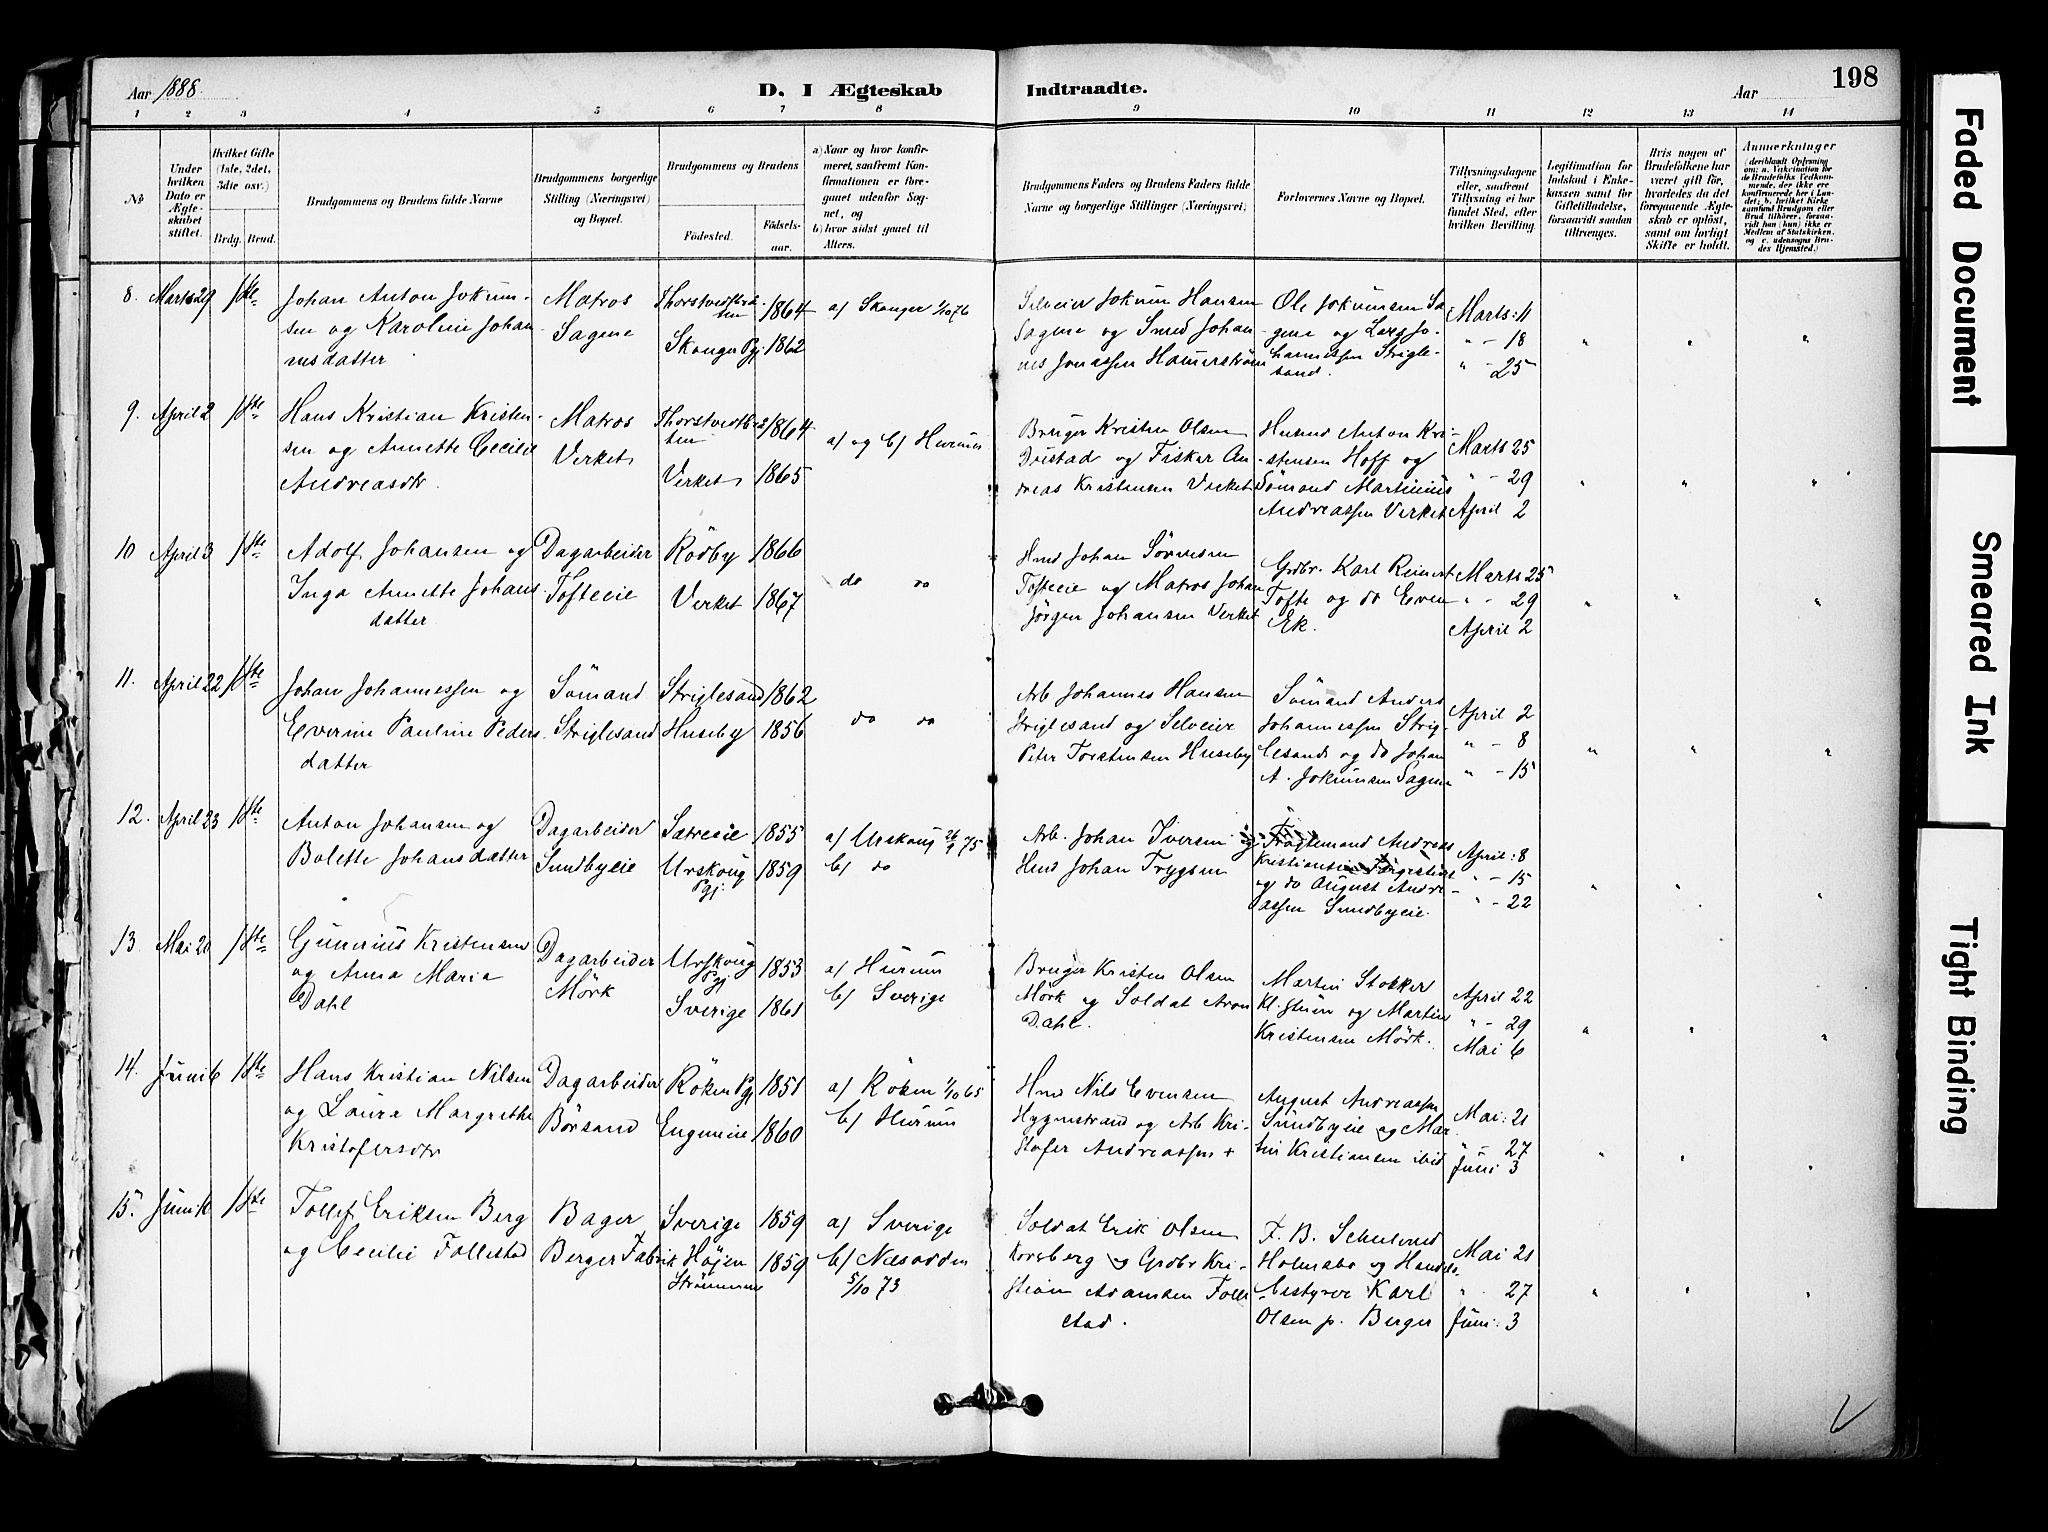 Aar 1888.
D. I Ægteskab Indtraadte.
Aar
198
1 2 3 4 5 6 7 8 9 10 11 12 13 14
No
Under hvilken Dato er Ægteskabet stiftet.
Hvilket Gifte (1ste, 2det, 3die osv.)
Brdg. Brud.
Brudgommens og Brudens fulde Navne
Brudgommens borgerlige Stilling (Næringsvei) og Bopæl.
Brudgommens og Brudens
Fødested.
Fødselsaar.
a) Naar og hvor konfirmeret, saafremt Konfirmationen er foregaaet udenfor Sognet, og
b) hvor sidst gaaet til Alters.
Brudgommens Faders og Brudens Faders fulde Navne og borgerlige Stillinger (Næringsvei)
Forlovernes Navne og Bopæl.
Tillysningsdagene eller, saafremt Tillysning ei har fundet Sted, efter hvilken Bevilling.
Legitimation for Indskud i Enkekassen samt for Giftetilladelse, forsaavidt saadan tiltrænges.
Hvis nogen af Brudefolkene har været gift før, hvorledes da det foregaaende Ægteskab er opløst, samt om lovligt Skifte er holdt.
Anmærkninger
8. Marts 29 1ste
Johan Anton Jokum-
sen og Karoline Johan
nesdatter
Matros
Sagene
1864
Skouger Pgj 1862
a) Skouger 1/10 76
Selveier Jokum Hansen
Sagene og Smed Johan-
nes Jonassen Hamerstrøm
Ole Jokumsen Sa
gene og Lars Jo-
hannessen Strigle-
sand.
Marts: 11
" - 18
" - 25
" " "
9. April 2 1ste
Hans Kristian Kristen-
sen og Annette Cecilie
Andreasdtr.
Matros
Verket
1864
Verket 1865
a) og b) Hurum
Bruger Kristen Olsen
og Fisker An
dreas Kristensen Verket
Husmd Anton Kri-
stensen Hoff og
Sömand Martinius
Andreassen Verket
Marts 25
" - 29
April 2
" " "
10 April 3 1ste
Adolf Johansen og
Inga Annette Johans
datter
Dagarbeider
Tofteeie
Rödby 1866
Verket 1867
do do
Hmd Johan Sörensen
Tofteeie og Matros Johan
Jörgen Johansen Verket
Grdbr. Karl Reinert
Tofte og do Even
Ek.
Marts 25
" - 29
April 2
" " "
11. April 22 1ste
Johan Johannessen og
Everine Pauline Peders
datter
Sömand
Striglesand
Striglesand 1862
Huseby 1856
do do
Arb Johannes Hansen
Striglesand og Selveier
Peter Torstensen Huseby
Sömand Anders
Johannessen Strig-
lesand og do Johan
A. Jokumsen Sagene
April 2
" - 8
" - 15
" " "
12. April 23 1ste
Anton Johansen og
Bolette Johansdatter
Dagarbeider
Sundbyeie
Sætreeie 1855
Urskoug
Pgj. 1859
a) Urskoug 26/9 75
b) do
Arb. Johan Iversen og
Hmd Johan Trygsen
Andreas
Kristiansen
og do August Andre-
assen Sundbyeie.
April: 8
" - 15
" - 22
" " "
13. Mai 20 1ste
Gunerius Kristensen
og Anna Maria
Dahl
Dagarbeider
Mörk
Urskoug
Pgj 1853
Sverige 1861
a) Hurum
b) Sverige
Bruger Kristen Olsen
Mörk og Soldat Aron
Dahl.
Martin Stokker
og Martin
Kristensen Mörk.
April 22
" - 29
Mai 6
" " "
14. Juni 6 1ste
Hans Kristian Nilsen
og Laura Margrethe
Kristofersdtr
Dagarbeider
Börsand
Röken Pgj 1851
Engeneie 1860
a) Röken 1/10 65
b) Hurum
Hmd Nils Evensen
Hyggenstrand og Arb Kri-
stofer Andreassen +
August Andreassen
Sundbyeie og Mar
tin Kristiansen ibid
Mai: 21
" - 27
Juni 3
" " "
15. Juni 6 1ste
Tollef Eriksen Berg
og Cecilie Follestad
Bager
Berger Fabrik
Sverige 1859
Höjen
Strömmene 1859
a) Sverige
b) Næsodden
5/10 73
Soldat Erik Olsen
Korsberg og Grdbr Kri-
stian Adamsen Folle
stad.
Holmsbo og Handels
bestyrer Karl
Olsen p. Berger
Mai 21
" 27
Juni: 3
" " "
Faded Document
Smeared Ink
Tight Binding